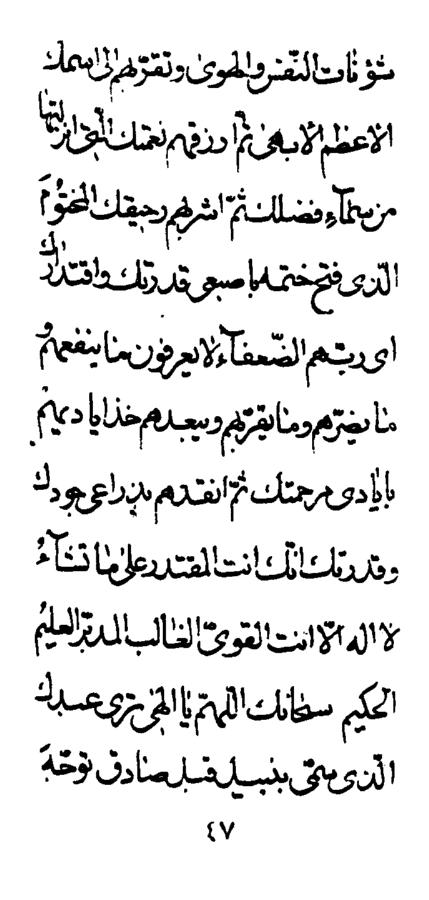 شؤنات النّفس والهوى وتقرّبهم الى اسمك
الاعظم الابهى ثمّ ارزقهم نعمتك الّتى انزلتها
من سمآء فضلك ثمّ اشربهم رحيقك المختوم
الّذى فتح ختمه باصبع قدرتك واقتدارك
اى ربّ هم الضّعفآء لا يعرفون ما ينفعهم و
ما يضرّهم وما يقرّبهم ويبعدهم خذ اياديهم
بايادى مرحمتك ثمّ انقذهم بذراعى جودك
وقدرتك انّك انت المقتدر على ما تشآء
لا اله الّا انت القوىّ الغالب المدبّر العليم
الحكيم سبحانك اللّهمّ يا الهى ترى عبدك
الّذى سمّى بنبيل قبل صادق توجّه
٤٧